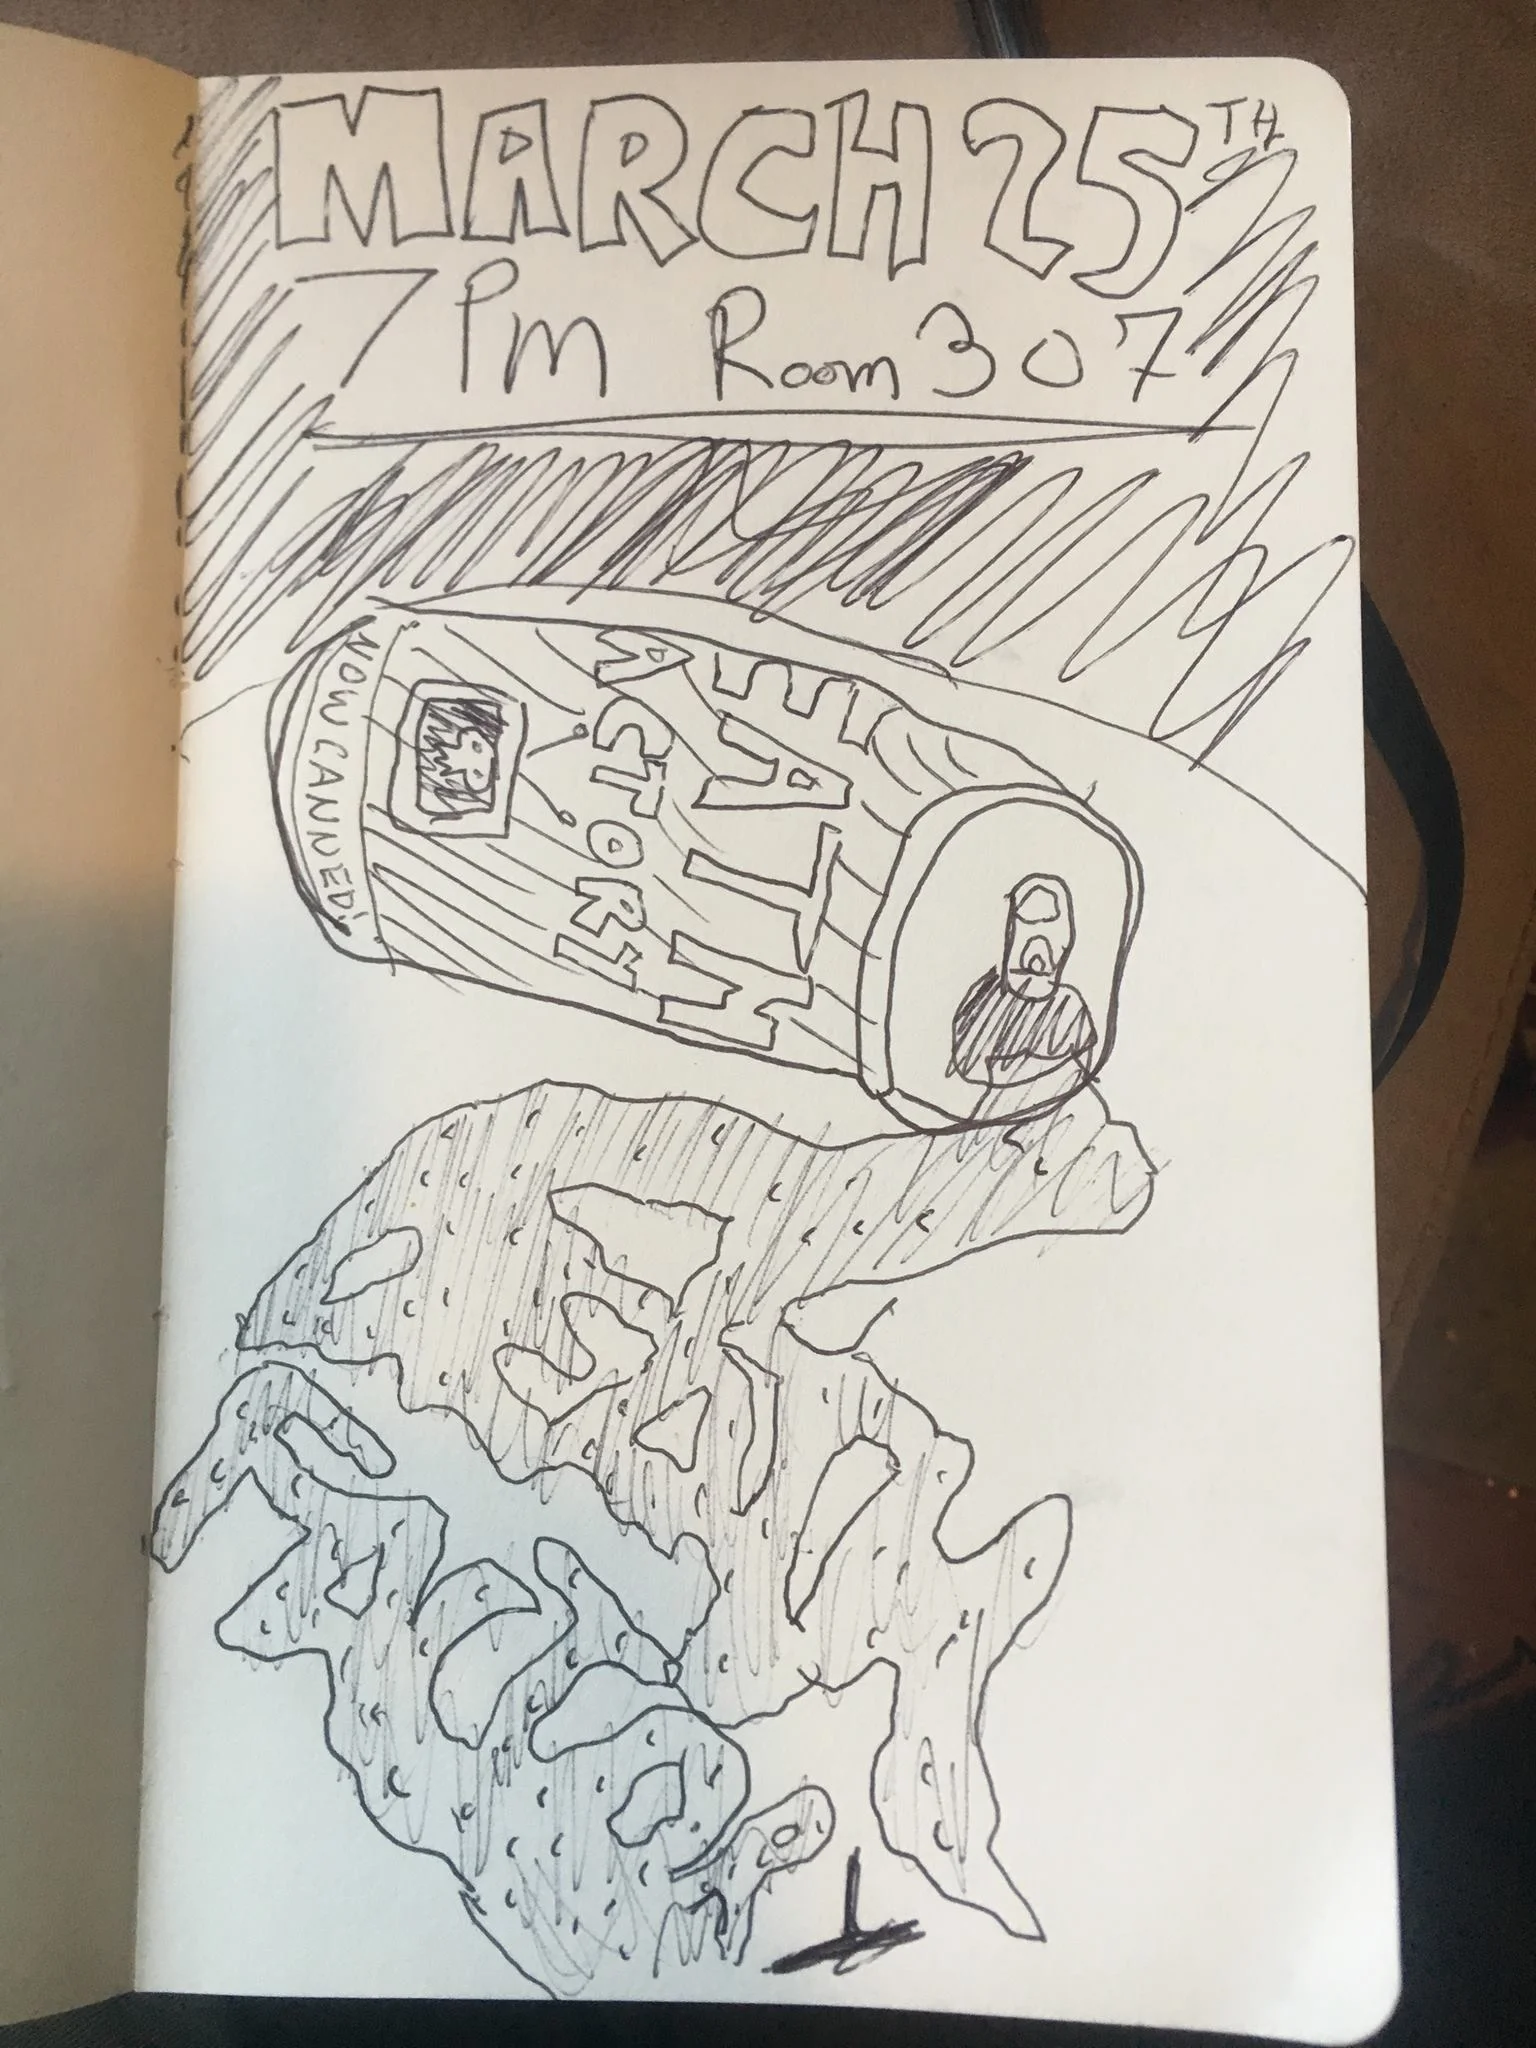 MARCH 25TH
7 Pm Room 307
EATH
ACTORY
NOW CANNED!